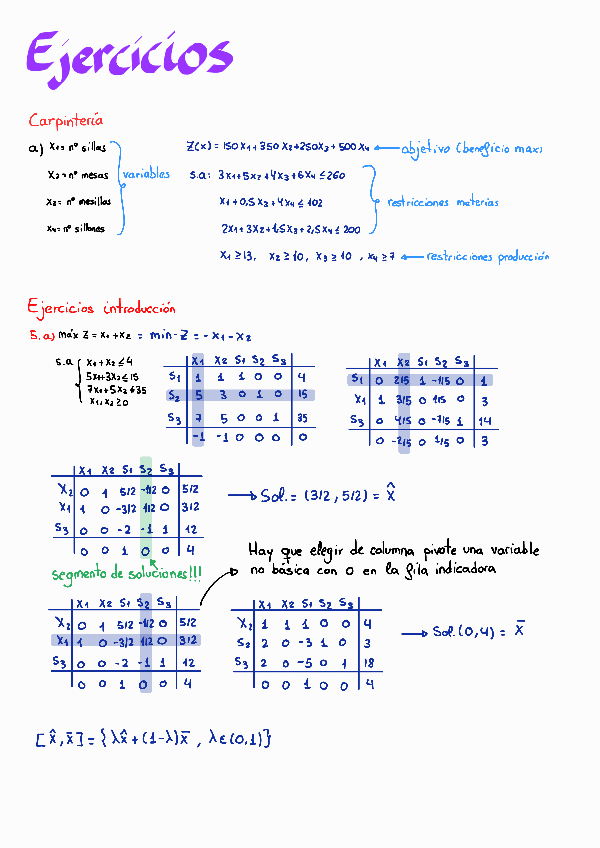 Ejercicios
Carpintería
a) X1= nº sillas
X2= nº mesas
X3= nº mesillas
X4= nº sillones
variables
Z(x) = 150X1+350X2+250X3+500X4 ← objetivo (beneficio max)
s.a: 3X1+5X2+4X3+6X4 ≤ 260
X1+0,5X3+4X4 ≤ 102
2X1+3X2+1,5X3+2,5X4 ≤ 200
restricciones materias
X1 ≥ 13, X2 ≥ 10, X3 ≥ 10, X4 ≥ 7 ← restricciones producción
Ejercicios introducción
5.a) máx Z = X1 + X2 = min -Z = -X1 - X2
s.a
X1+X2 ≤ 4
5X1+3X2 ≤ 15
7X1+5X2 ≤ 35
X1,X2 ≥ 0
X1 X2 S1 S2 S3
S1 1 1 1 0 0 4
S2 5 3 0 1 0 15
S3 7 5 0 0 1 35
-1 -1 0 0 0 0
X1 X2 S1 S2 S3
S1 0 2/5 1 -1/5 0 1
X1 1 3/5 0 1/5 0 3
S3 0 4/5 0 -7/5 1 14
0 -2/5 0 1/5 0 3
X1 X2 S1 S2 S3
X2 0 1 5/2 -1/2 0 5/2
X1 1 0 -3/2 1/2 0 3/2
S3 0 0 -2 -1 1 12
0 0 1 0 0 4
→ Sol. = (3/2, 5/2) = x̂
segmento de soluciones!!!
Hay que elegir de columna pivote una variable
no básica con 0 en la fila indicadora
X1 X2 S1 S2 S3
X2 0 1 5/2 -1/2 0 5/2
X1 1 0 -3/2 1/2 0 3/2
S3 0 0 -2 -1 1 12
0 0 1 0 0 4
X1 X2 S1 S2 S3
X2 1 1 1 0 0 4
S2 2 0 -3 1 0 3
S3 2 0 -5 0 1 18
0 0 1 0 0 4
→ Sol. (0,4) = x̄
[x̂, x̄] = {λx̂ + (1-λ)x̄, λ∈(0,1)}